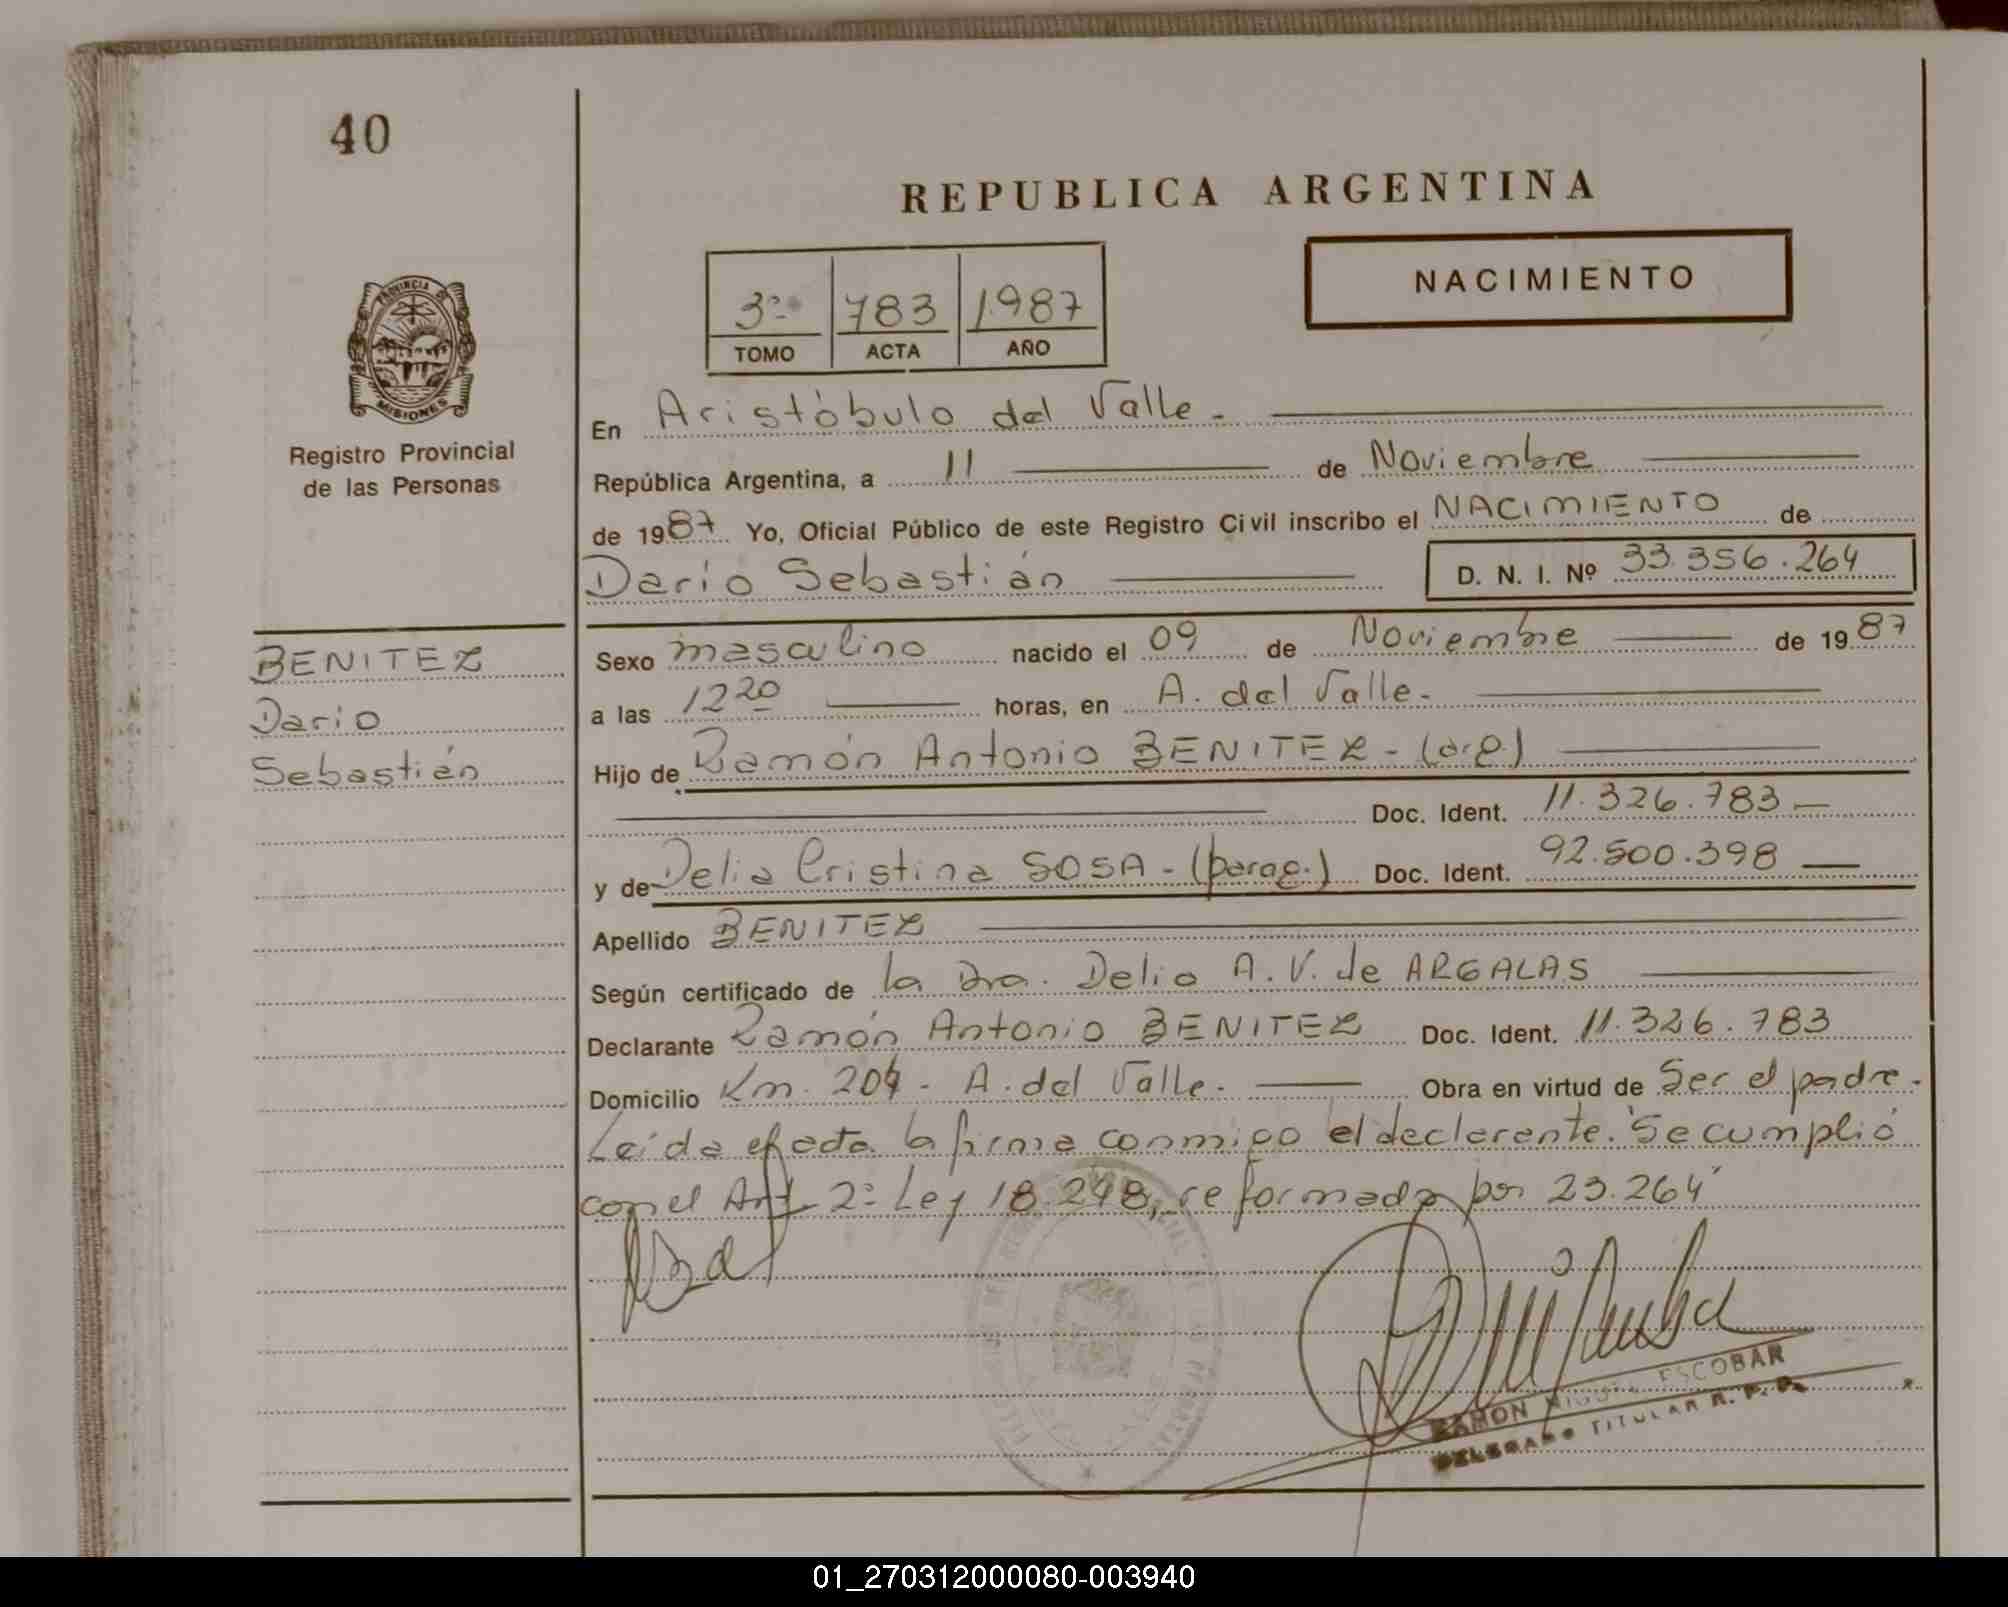 40
REPUBLICA ARGENTINA
NACIMIENTO
3º 783 1987
TOMO ACTA AÑO
PROVINCIA DE
MISIONES
Registro Provincial
de las Personas
En Aristóbulo del Valle.-
República Argentina, a 11 de Noviembre
de 1987 Yo, Oficial Público de este Registro Civil inscribo el NACIMIENTO de
Darío Sebastián D. N. I. Nº 33.356.264
BENITEZ
Dario
Sebastián
Sexo masculino nacido el 09 de Noviembre de 1987
a las 12 20 horas, en A. del Valle.-
Hijo de Ramón Antonio BENITEZ - (arg.)
Doc. Ident. 11.326.783
y de Delia Cristina SOSA - (parag.) Doc. Ident. 92.500.398
Apellido BENITEZ
Según certificado de la Dra. Delia A. V. de ARGALAS
Declarante Ramón Antonio BENITEZ Doc. Ident. 11.326.783
Domicilio Km. 204 - A. del Valle. Obra en virtud de Ser el padre.
Leída el acta la firma conmigo el declarente. Se cumplió
con el Art. 2º Ley 18.248, reformada por 23.264
RAMON MIGUEL ESCOBAR
DELEGADO TITULAR R. P. P.
01_270312000080-003940